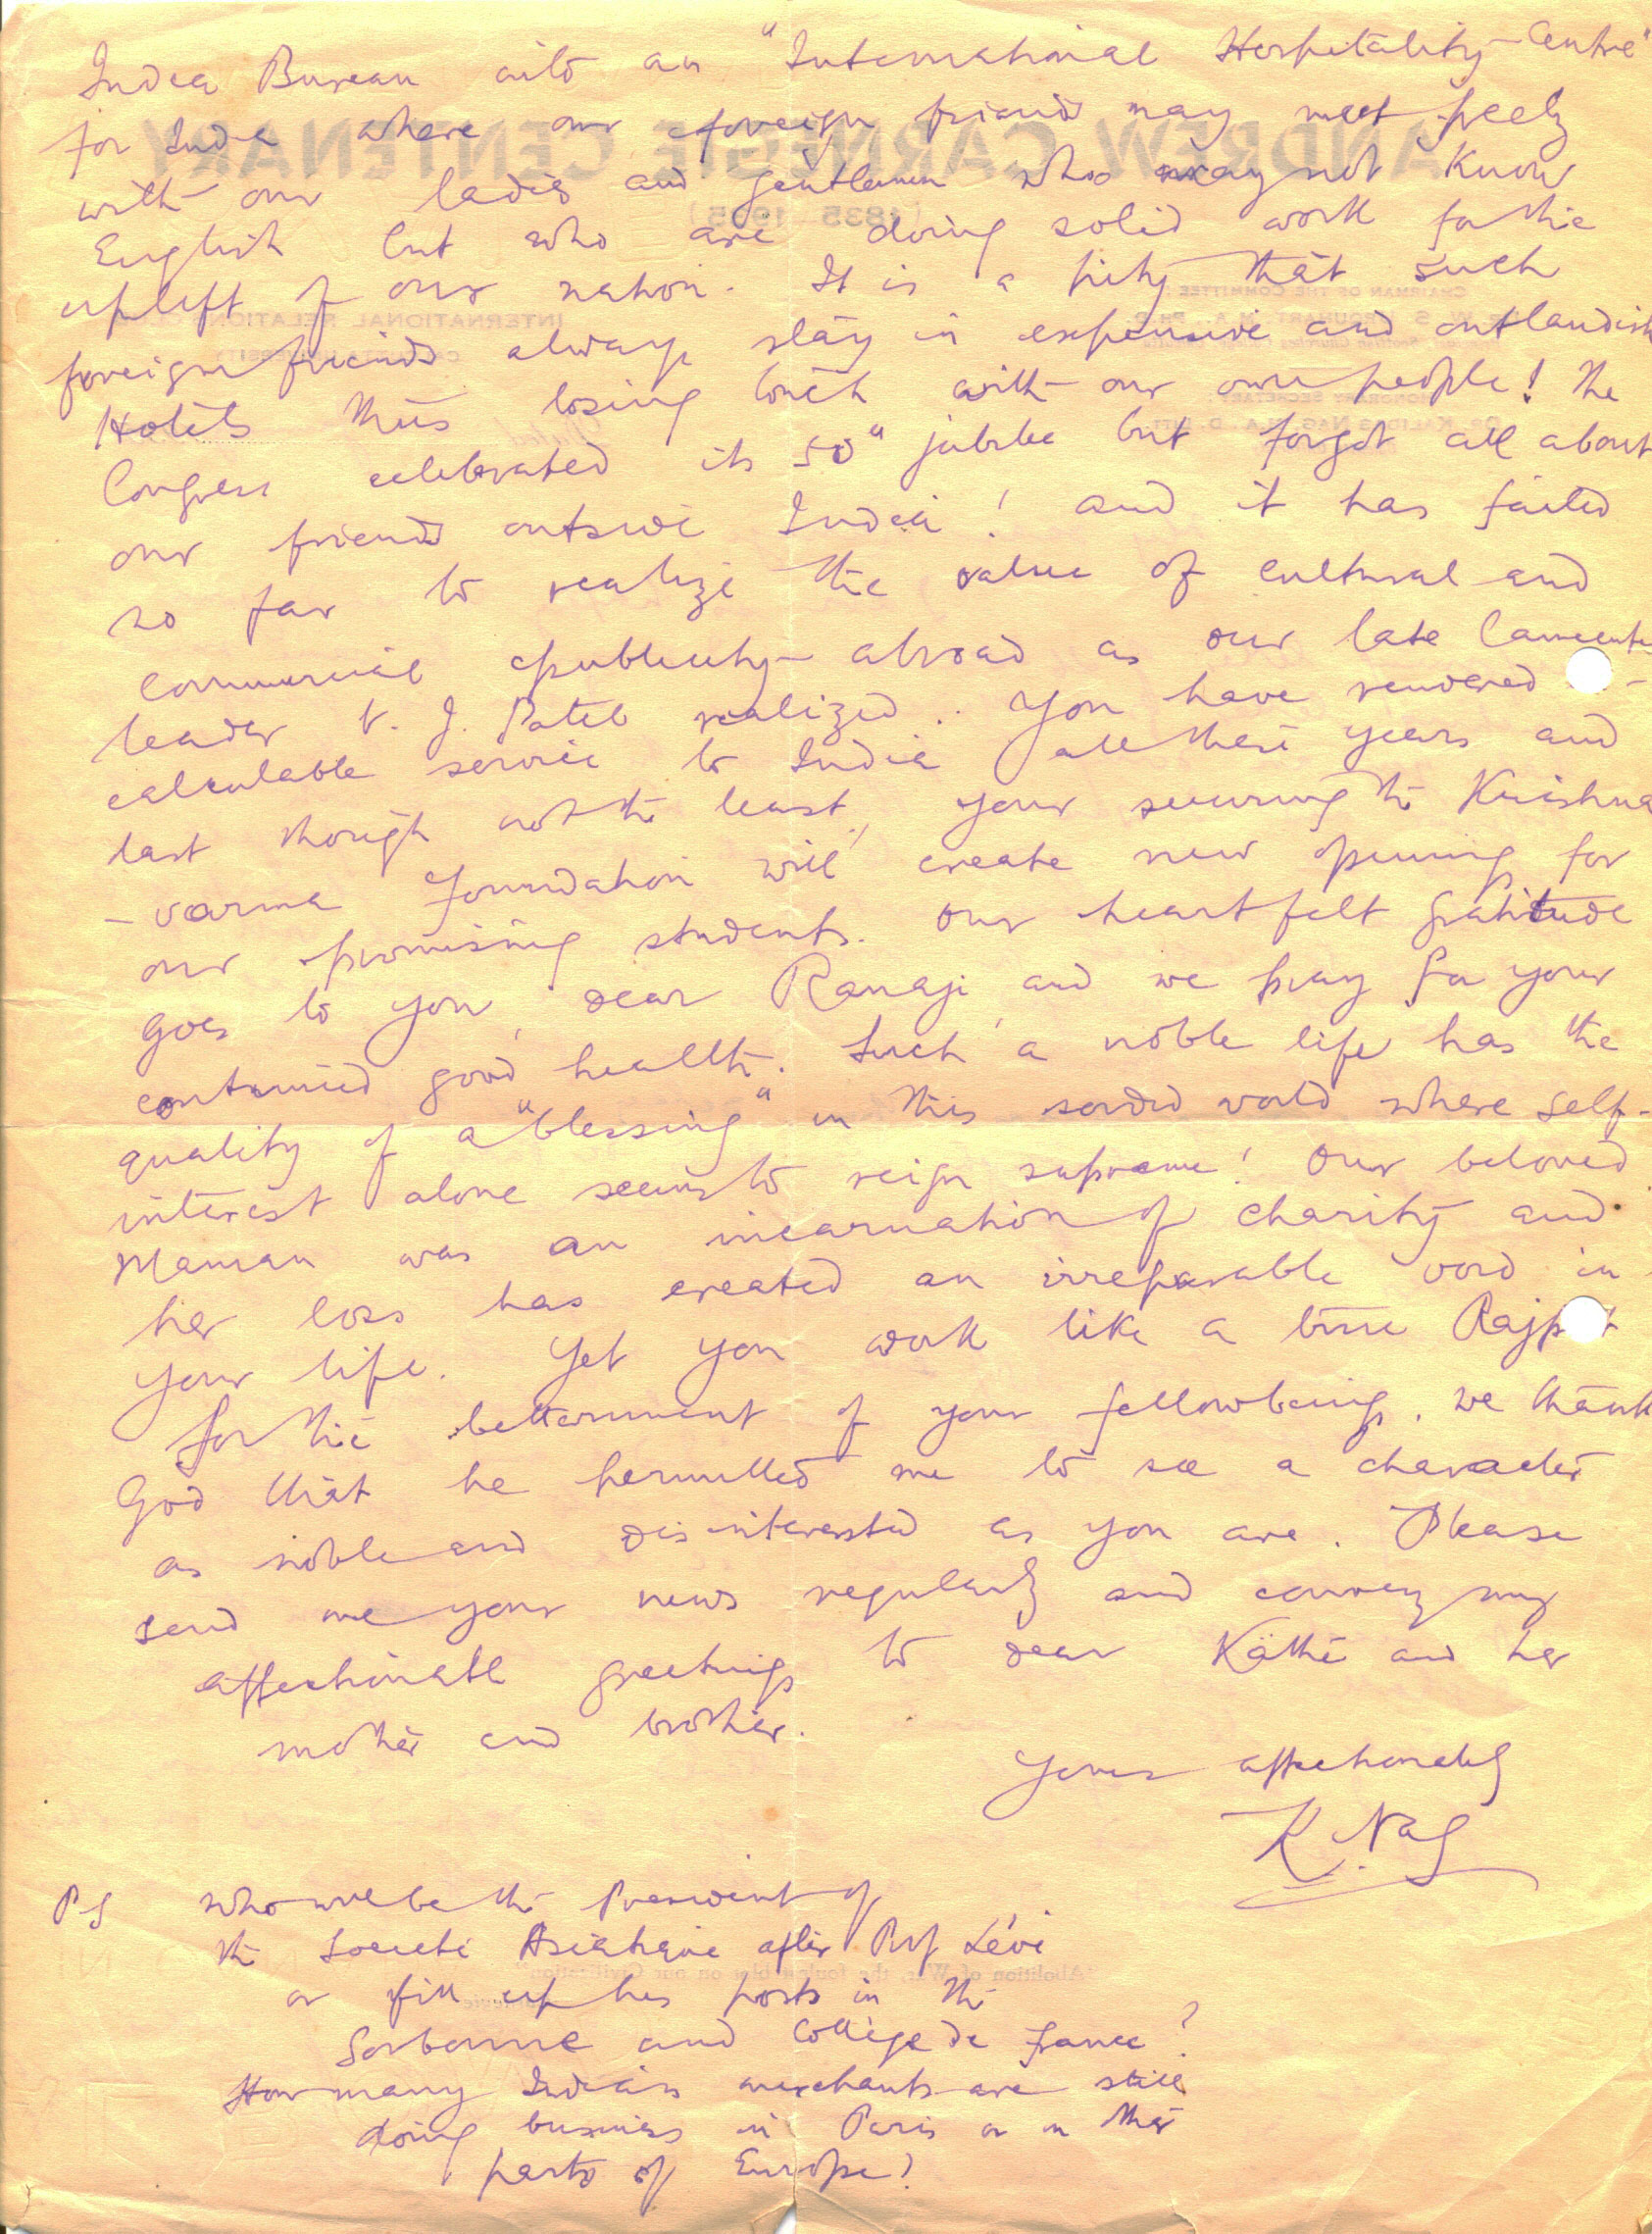 India Bureau into an "International Hospitality Centre"
for India where our foreign friends may meet freely
with our ladies and gentlemen who may not know
English but who are doing solid work for the
uplift of our nation. It is a pity that such
foreign friends always stay in expensive and outlandish
Hotels thus losing touch with our own people! The
Congress celebrated its 50" jubilee but forgot all about
our friends outside India! and it has failed
so far to realize the value of cultural and
commercial publicity abroad as our late lamented
leader V. J. Patel realized. You have rendered -
calculable service to India all these years and
last though not the least, your securing the Krishna
- varma foundation will create new opening for
our promising students. Our heartfelt gratitude
goes to you, dear Ranaji, and we pray for your
continued good health. Such a noble life has the
quality of a "blessing" in this sordid world where self-
interest alone seems to reign supreme! Our beloved
Maman was an incarnation of charity and
her loss has created an irreparable void in
your life. Yet you work like a true Rajput
for the betterment of your fellowbeings. We thank
God that he permitted me to see a character
as noble and disinterested as you are. Please
send me your news regularly and convey my
affectionate greetings to dear Käthe and her
mother and brother.
Yours affectionately
K. Nag
PS Who will be the President of
the Societé Asiatique after Prof Lévi
or fill up his posts in the
Sorbonne and Collège de France?
How many Indian merchants are still
doing business in Paris or in other
parts of Europe?
ANDREW CARNEGIE CENTENARY
(1835 - 1935)
CHAIRMAN OF THE COMMITTEE:
INTERNATIONAL RELATIONS
HONORARY SECRETARY:
"Abolition of War, the foulest blot on our Civilization"